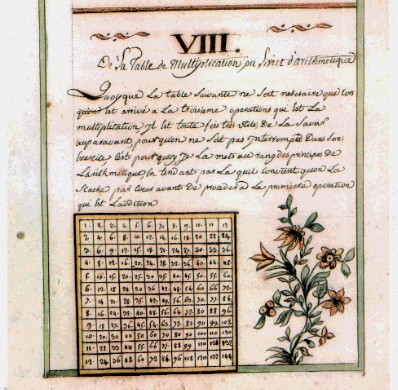 VIII.
De La Table de Multiplication ou Livret d'arithmetique
Quoyque La table Suivante ne Soit necessaire que lors
qu'on est arrivé a La troisieme operations qui est La
multiplication Il est toute fois tres utile de La Savoir
auparavant pour qu'on ne Soit pas Interrompu Dans Son
C'est pourquoy Je La mets au rang des principes de
Larithmetique
par cœur avant de proceder a La premiere operation
qui est Laddition
1 2 3 4 5 6 7 8 9 10 11 12
2 4 6 8 10 12 14 16 18 20 22 24
3 6 9 12 15 18 21 24 27 30 33 36
4 8 12 16 20 24 28 32 36 40 44 48
5 10 15 20 25 30 35 40 45 50 55 60
6 12 18 24 30 36 42 48 54 60 66 72
7 14 21 28 35 42 49 56 63 70 77 84
8 16 24 32 40 48 56 64 72 80 88 96
9 18 27 36 45 54 63 72 81 90 99 108
10 20 30 40 50 60 70 80 90 100 110 120
11 22 33 44 55 66 77 88 99 110 121 132
12 24 36 48 60 72 84 96 108 120 132 144